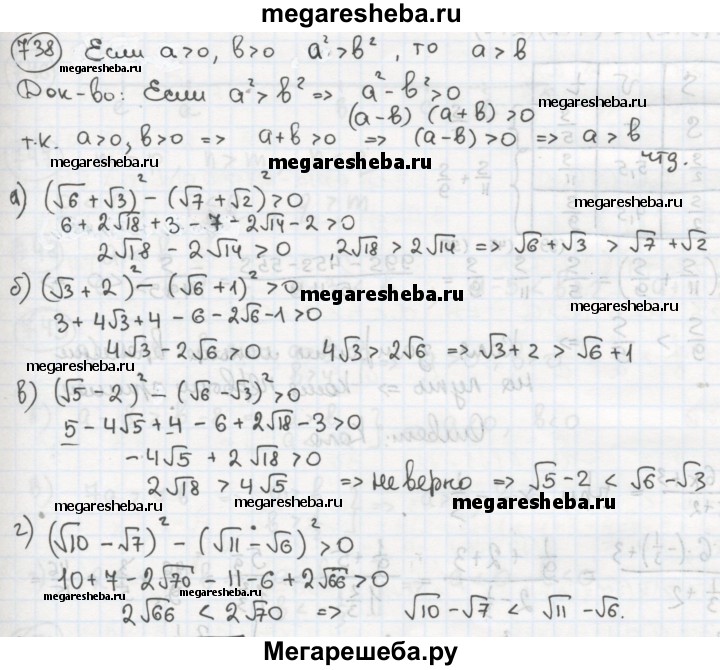 megaresheba.ru
738 Если a>0, b>0 a²>b², то a>b
megaresheba.ru
Док-во: Если a²>b² => a²-b²>0
megaresheba.ru
(a-b) (a+b) >0
т.к. a>0, b>0 => a+b>0 => (a-b)>0 => a>b
megaresheba.ru
чтд.
а) (√6 + √3)² - (√7 + √2)² >0
6 + 2√18 + 3 - 7 - 2√14 - 2 > 0
2√18 - 2√14 > 0 , 2√18 > 2√14 => √6+√3 > √7+√2
б) (√3 + 2)² - (√6 + 1)² >0
megaresheba.ru
3 + 4√3 + 4 - 6 - 2√6 - 1 >0
megaresheba.ru
4√3 - 2√6 > 0 4√3 > 2√6 => √3 + 2 > √6 + 1
megaresheba.ru
в) (√5 - 2)² - (√6 - √3)² >0
5 - 4√5 + 4 - 6 + 2√18 - 3 > 0
-4√5 + 2√18 > 0
2√18 > 4√5 => неверно => √5 - 2 < √6 - √3
megaresheba.ru
megaresheba.ru
г) (√10 - √7)² - (√11 - √6)² > 0
10 + 7 - 2√70 - 11 - 6 + 2√66 > 0
megaresheba.ru
megaresheba.ru
2√66 < 2√70 => √10 - √7 < √11 - √6.
Мегарешеба.ру